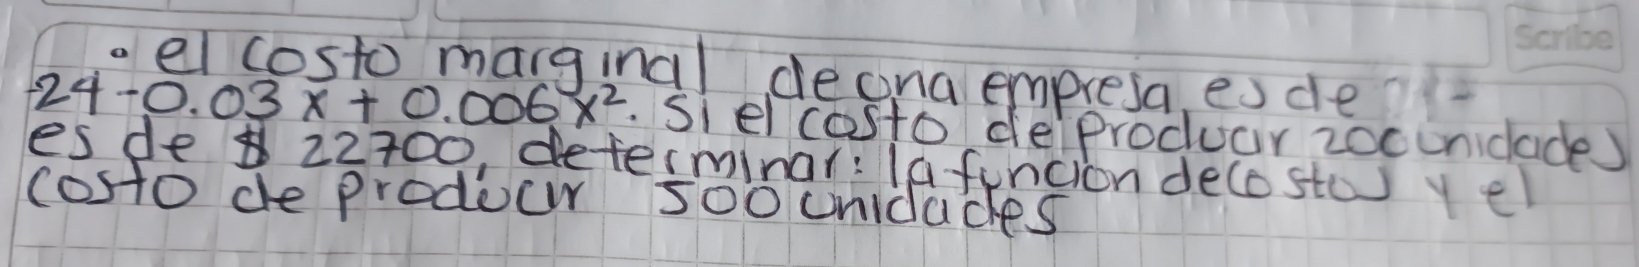 Scribe
• el costo marginal de una empresa es de
24-0.03x + 0.006x². Si el costo de producir 200 unidades
es de $ 22700, determinar: la función de costos y el
costo de producir 500 unidades